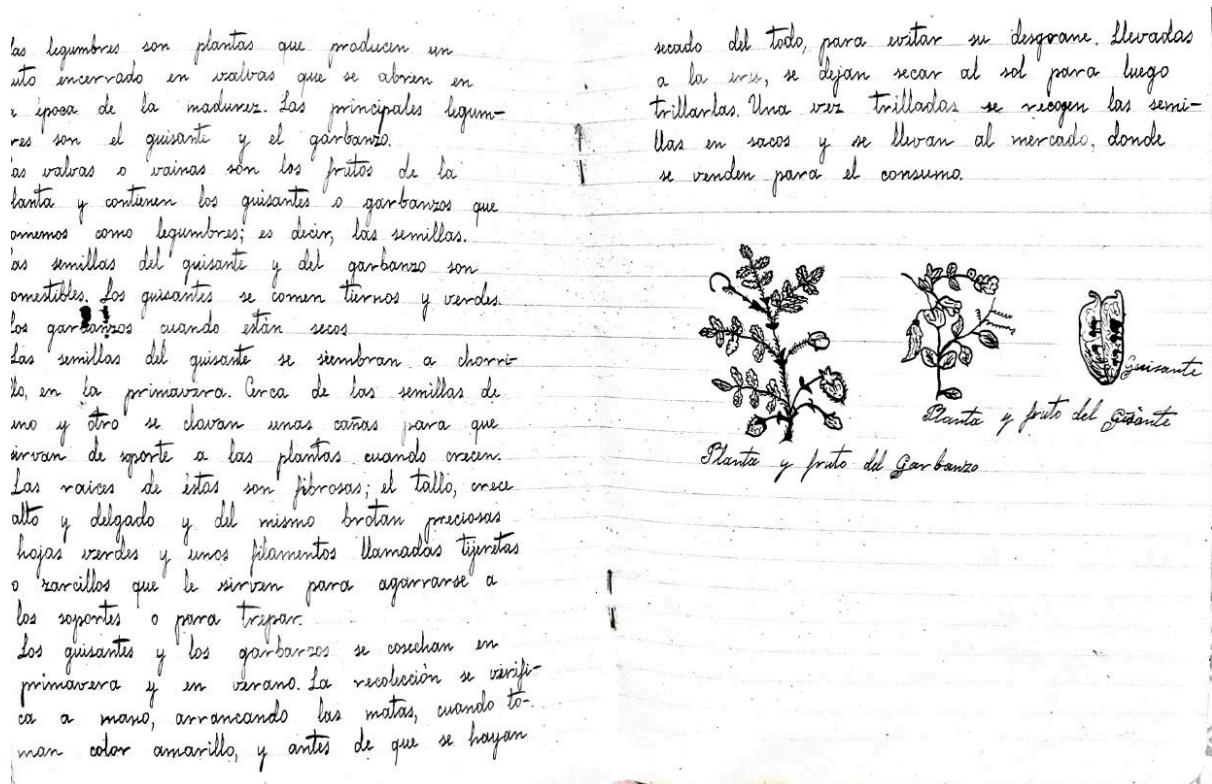 las legumbres son plantas que producen un
uto encerrado en valvas que se abrien en
época de la madurez. Las principales legum-
res son el guisante y el garbanzo.
as valvas o vainas son los frutos de la
lanta y contienen los guisantes o garbanzos que
omemos como legumbres; es decir, las semillas.
as semillas del guisante y del garbanzo son
omestibles. Los guisantes se comen tiernos y verdes.
Los garbanzos cuando están secos
Las semillas del guisante se siembran a chorri-
llo, en la primavera. Cerca de las semillas de
uno y otro se clavan unas cañas para que
sirvan de soporte a las plantas cuando crecen.
Las raices de éstas son fibrosas; el tallo, crece
alto y delgado y del mismo brotan preciosas
hojas verdes y unos filamentos llamadas tijeretas
o zarcillos que le sirven para agarrarse a
los soportes o para trepar.
Los guisantes y los garbanzos se cosechan en
primavera y en verano. La recolección se verifi-
ca a mano, arrancando las matas, cuando to-
man color amarillo, y antes de que se hayan
secado del todo, para evitar su desgrane. Llevadas
a la era, se dejan secar al sol para luego
trillarlas. Una vez trilladas se recogen las semi-
llas en sacos y se llevan al mercado, donde
se venden para el consumo.
Guisante
Planta y fruto del
Planta y fruto del Garbanzo